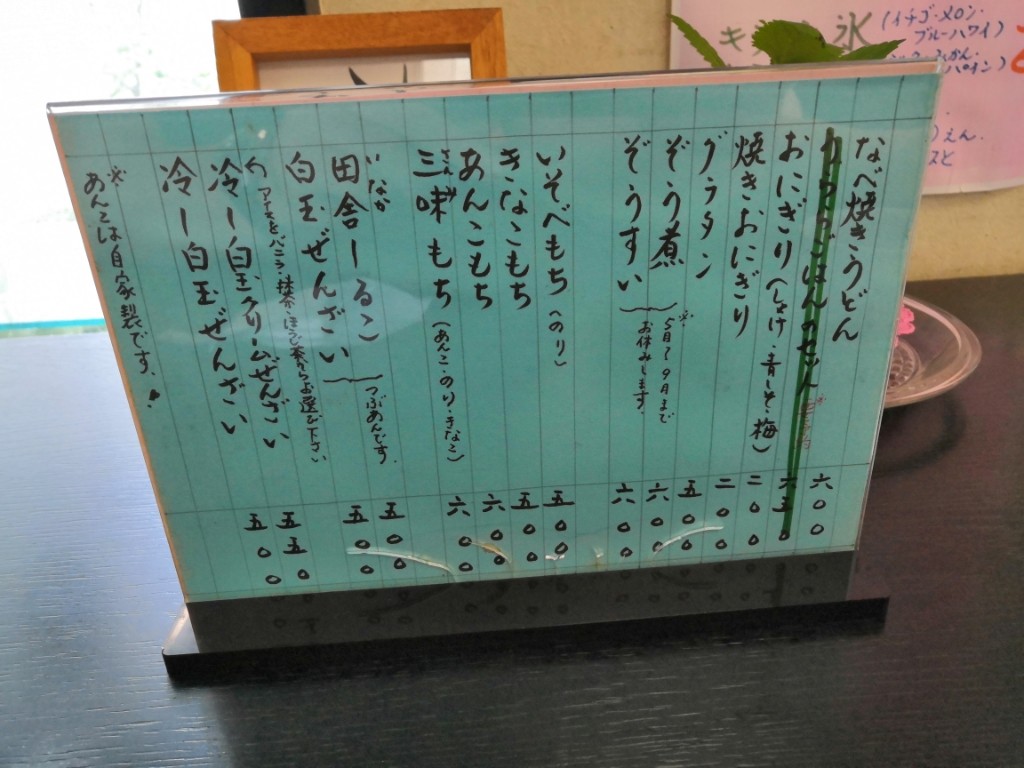 なべ焼きうどん 六〇〇
おにぎり(しゃけ 青しそ・梅) 二〇〇
焼きおにぎり 二〇〇
グラタン 五〇〇
ぞう煮 六〇〇
ぞうすい 六〇〇
※5月〜9月まで
お休みします。
いそべもち(のり) 五〇〇
きなこもち 五〇〇
あんこもち 六〇〇
三味もち(あんこ・のり・きなこ) 六〇〇
いなか
田舎しるこ 五〇〇
白玉ぜんざい 五〇〇
つぶあんです。
アイスをバニラ・抹茶・ほうじ茶からお選び下さい
冷し白玉クリームぜんざい 五五〇
冷し白玉ぜんざい 五〇〇
※あんこは自家製です。!
氷
(イチゴ・メロン・
ブルーハワイ)